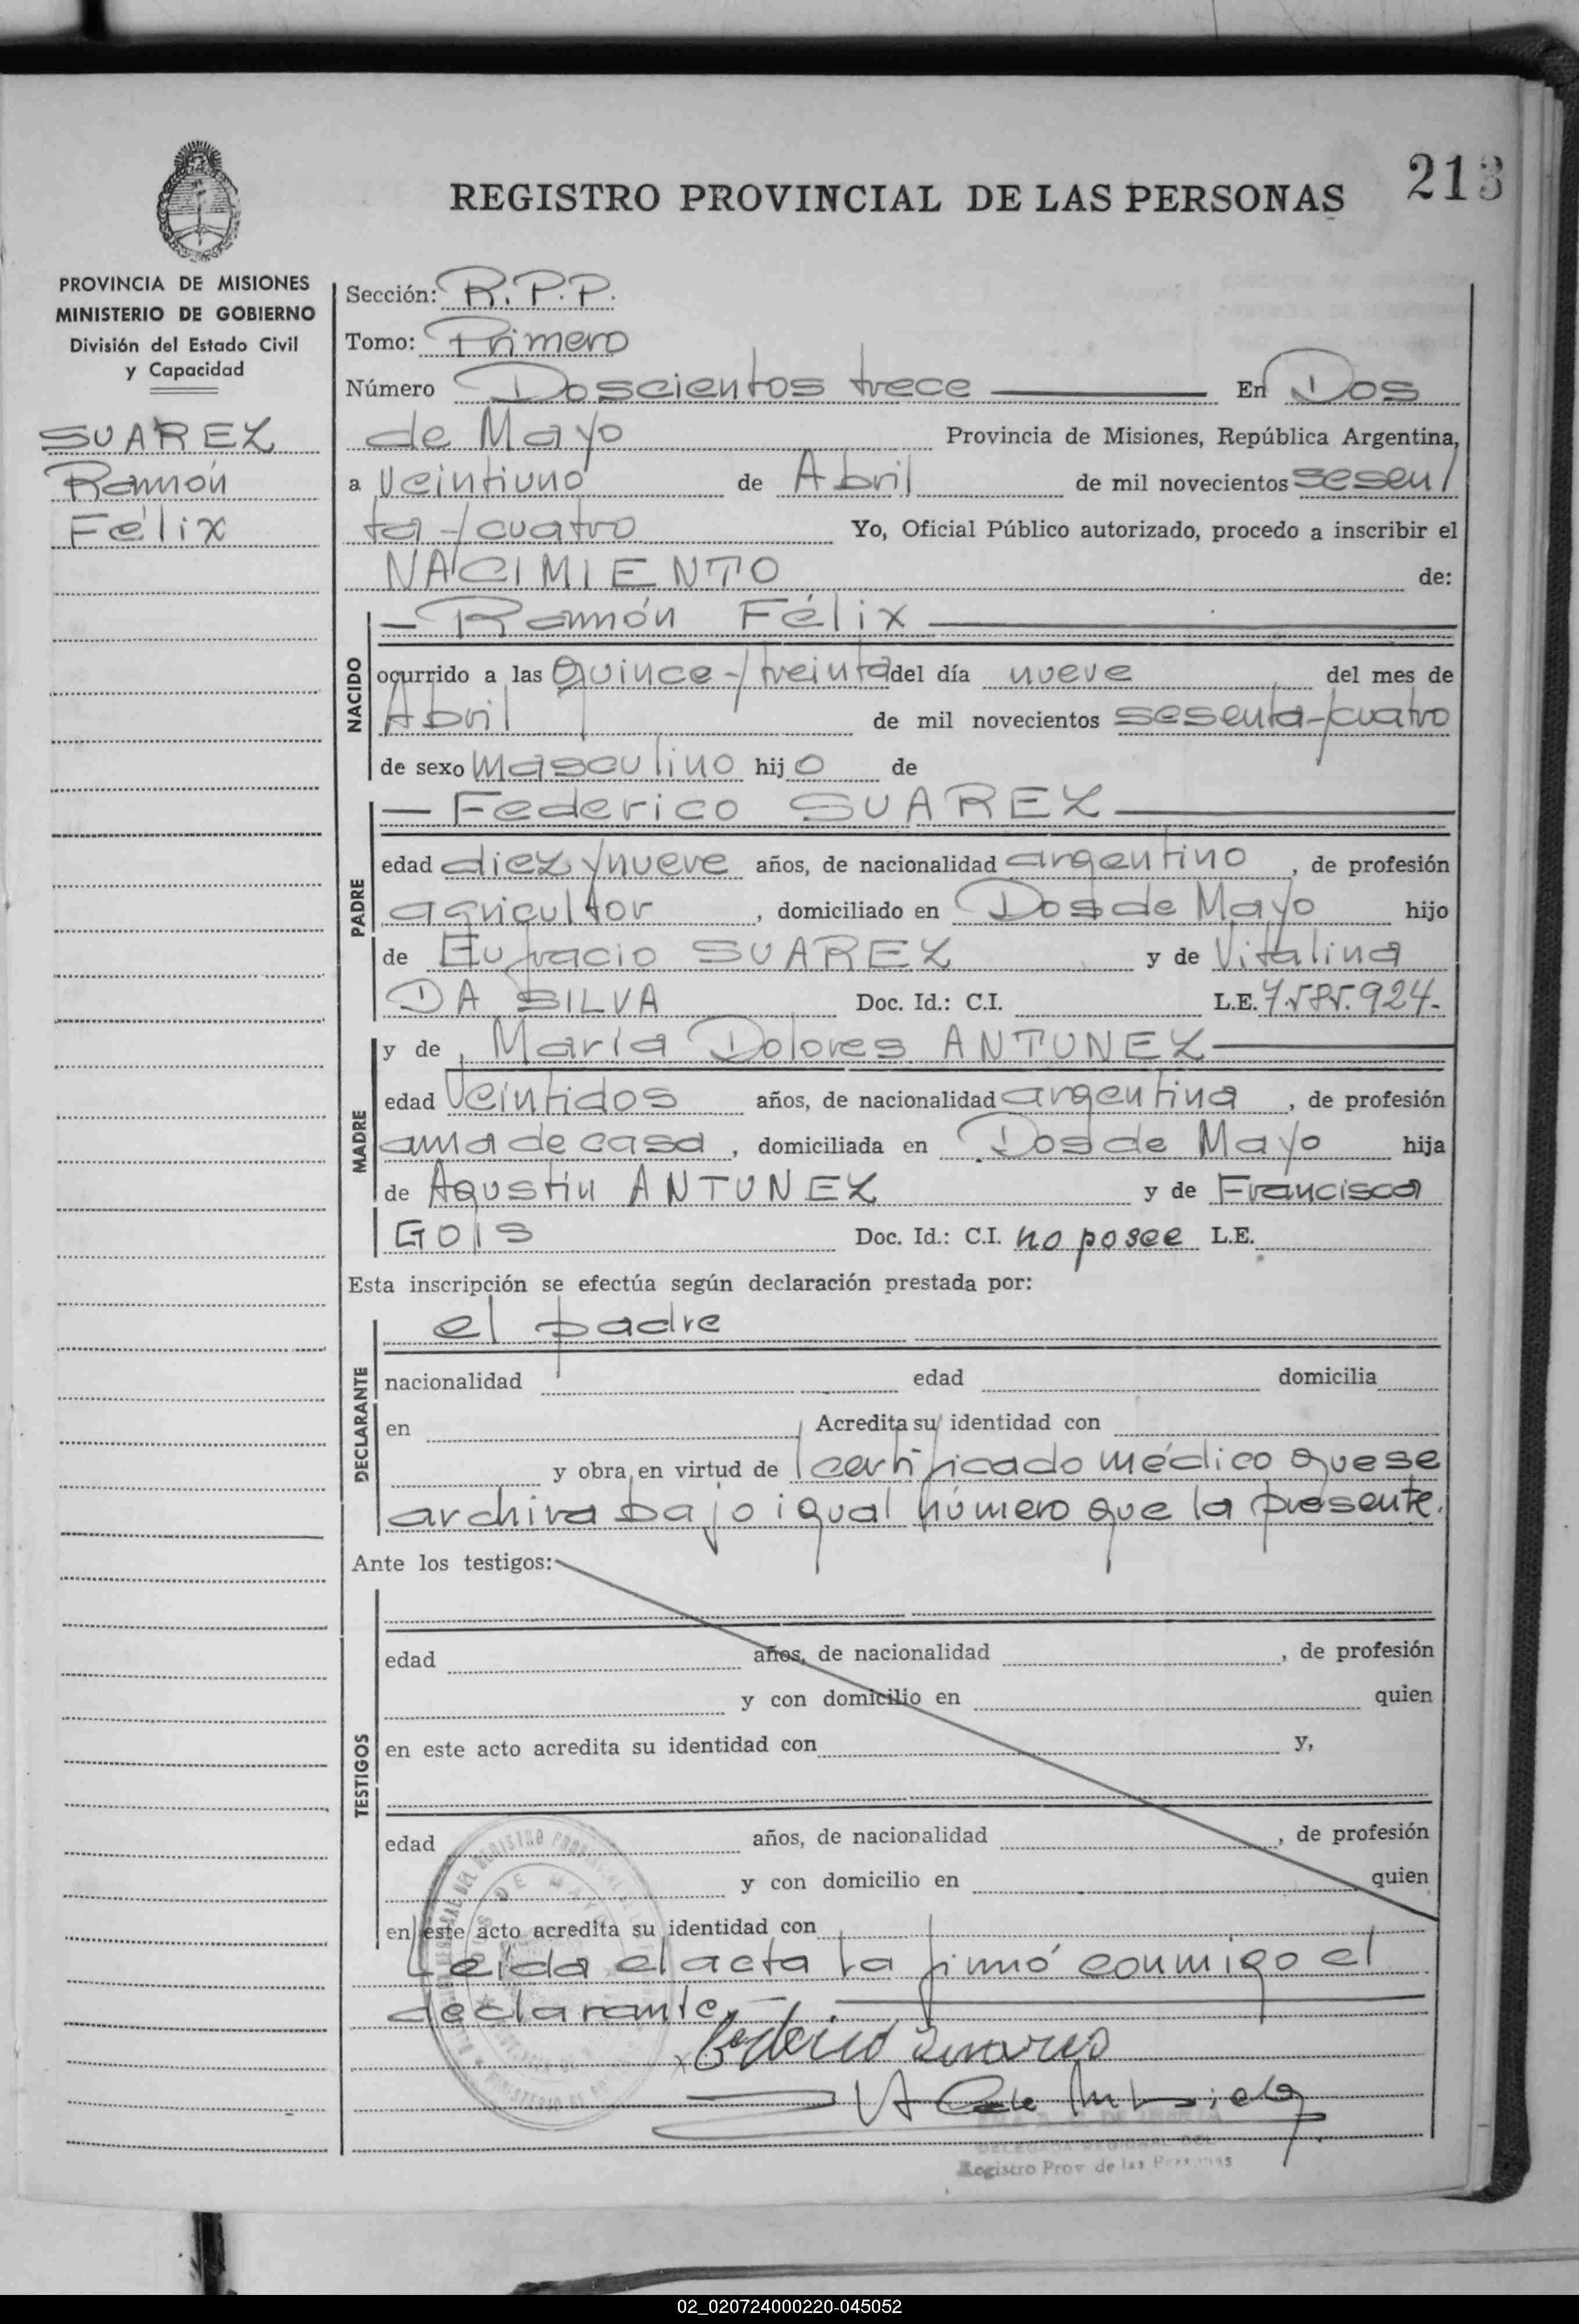 213
REGISTRO PROVINCIAL DE LAS PERSONAS
PROVINCIA DE MISIONES
MINISTERIO DE GOBIERNO
División del Estado Civil
y Capacidad
SUAREZ
Ramón
Félix
Sección: R.P.P.
Tomo: Primero
Número Doscientos trece En Dos
de Mayo Provincia de Misiones, República Argentina,
a Veintiuno de Abril de mil novecientos sesen/
ta-/cuatro Yo, Oficial Público autorizado, procedo a inscribir el
NACIMIENTO de:
NACIDO
— Ramón Félix
ocurrido a las Quince-/treinta del día nueve del mes de
Abril de mil novecientos sesenta-/cuatro
de sexo masculino hijo de
PADRE
— Federico SUAREZ
edad diez y nueve años, de nacionalidad argentino, de profesión
agricultor, domiciliado en Dos de Mayo hijo
de Eufracio SUAREZ y de Vitalina
DA SILVA Doc. Id.: C.I. L.E. 7.585.924-
MADRE
y de María Dolores ANTUNEZ
edad Veintidos años, de nacionalidad argentina, de profesión
ama de casa, domiciliada en Dos de Mayo hija
de Agustín ANTUNEZ y de Francisca
GOIS Doc. Id.: C.I. no posee L.E.
Esta inscripción se efectúa según declaración prestada por:
DECLARANTE
el padre
nacionalidad edad domicilia
en Acredita su identidad con
y obra en virtud de certificado médico que se
archiva bajo igual número que la presente.
Ante los testigos:
TESTIGOS
edad años, de nacionalidad , de profesión
y con domicilio en quien
en este acto acredita su identidad con y,
edad años, de nacionalidad , de profesión
y con domicilio en quien
en este acto acredita su identidad con
Leída el acta la firmó conmigo el
declarante
x Federico Suares
DELEGADA REGIONAL DEL
Registro Prov de las Personas
02_020724000220-045052